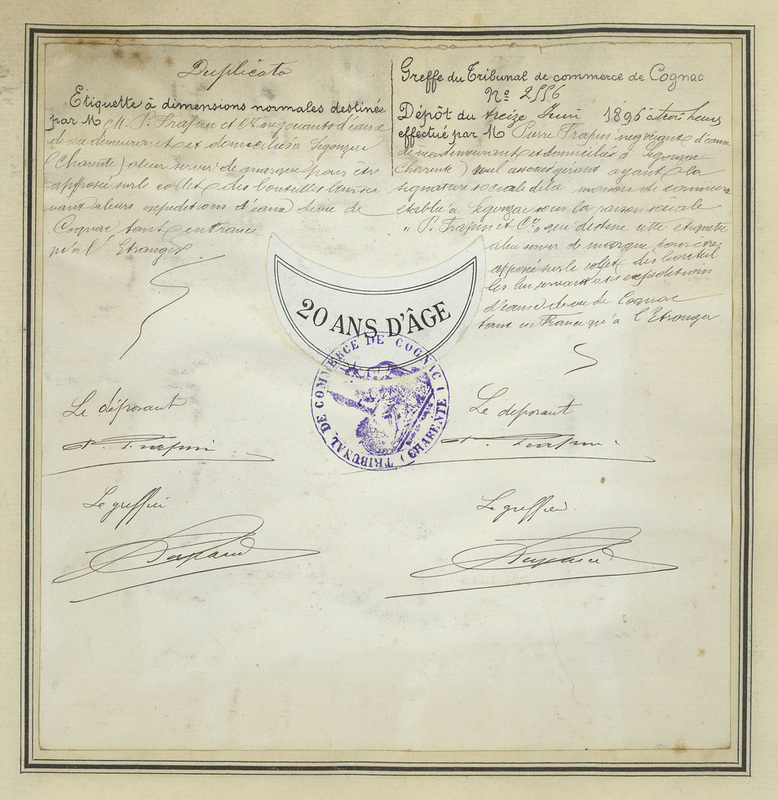 Duplicata
Etiquette à dimensions normales destinée
par M M. P. Frapin et Cie négociants d'eaux
de vie demeurant et domiciliés à Segonzac
(Charente) à leur servir de marque pour être
apposée sur le collet des bouteilles leur ser
vant à leurs expéditions d'eaux de vie de
Cognac tant en France
qu'à l'Etranger
Le déposant
P. Frapin
Le greffier
Greffe du Tribunal de commerce de Cognac
Nº 2556
Dépôt du treize Juin 1896 à trois heures
effectué par M Pierre Frapin négociant d'eaux
de vie demeurant et domicilié à Segonzac
(Charente) seul assoc gérant ayant la
signature sociale de la maison de commerce
établie à Segonzac sous la raison sociale
"P. Frapin et Cie" qui destine cette étiquette
à lui servir de marque pour être
apposée sur le collet des bouteil
les lui servant à ses expéditions
d'eaux de vie de Cognac
tant en France qu'à l'Etranger
Le déposant
P. Frapin
Le greffier
20 ANS D'ÂGE
TRIBUNAL DE COMMERCE DE COGNAC (CHARENTE)